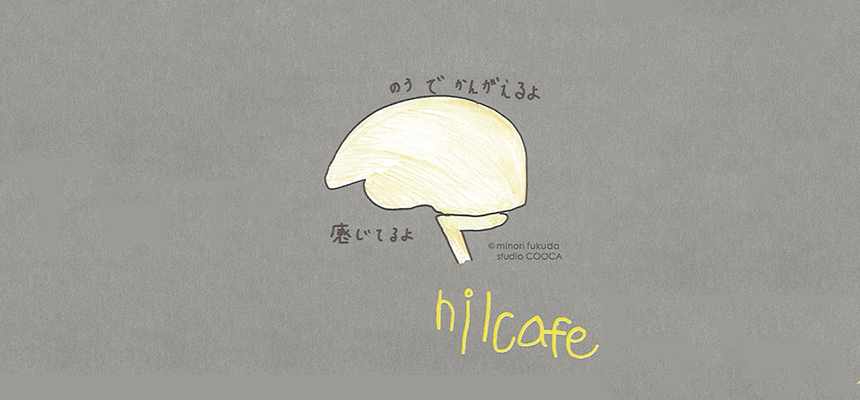 のうでかんがえるよ
感じてるよ
©minori fukuda
studio COOCA
nilcafe